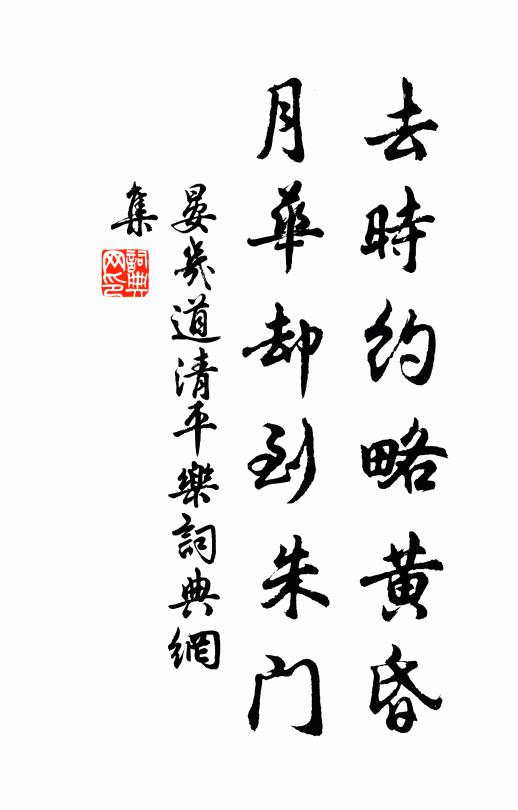 去時約略黄昏
月華却到朱门
晏幾道清平樂詞典網
集
詞典
网印